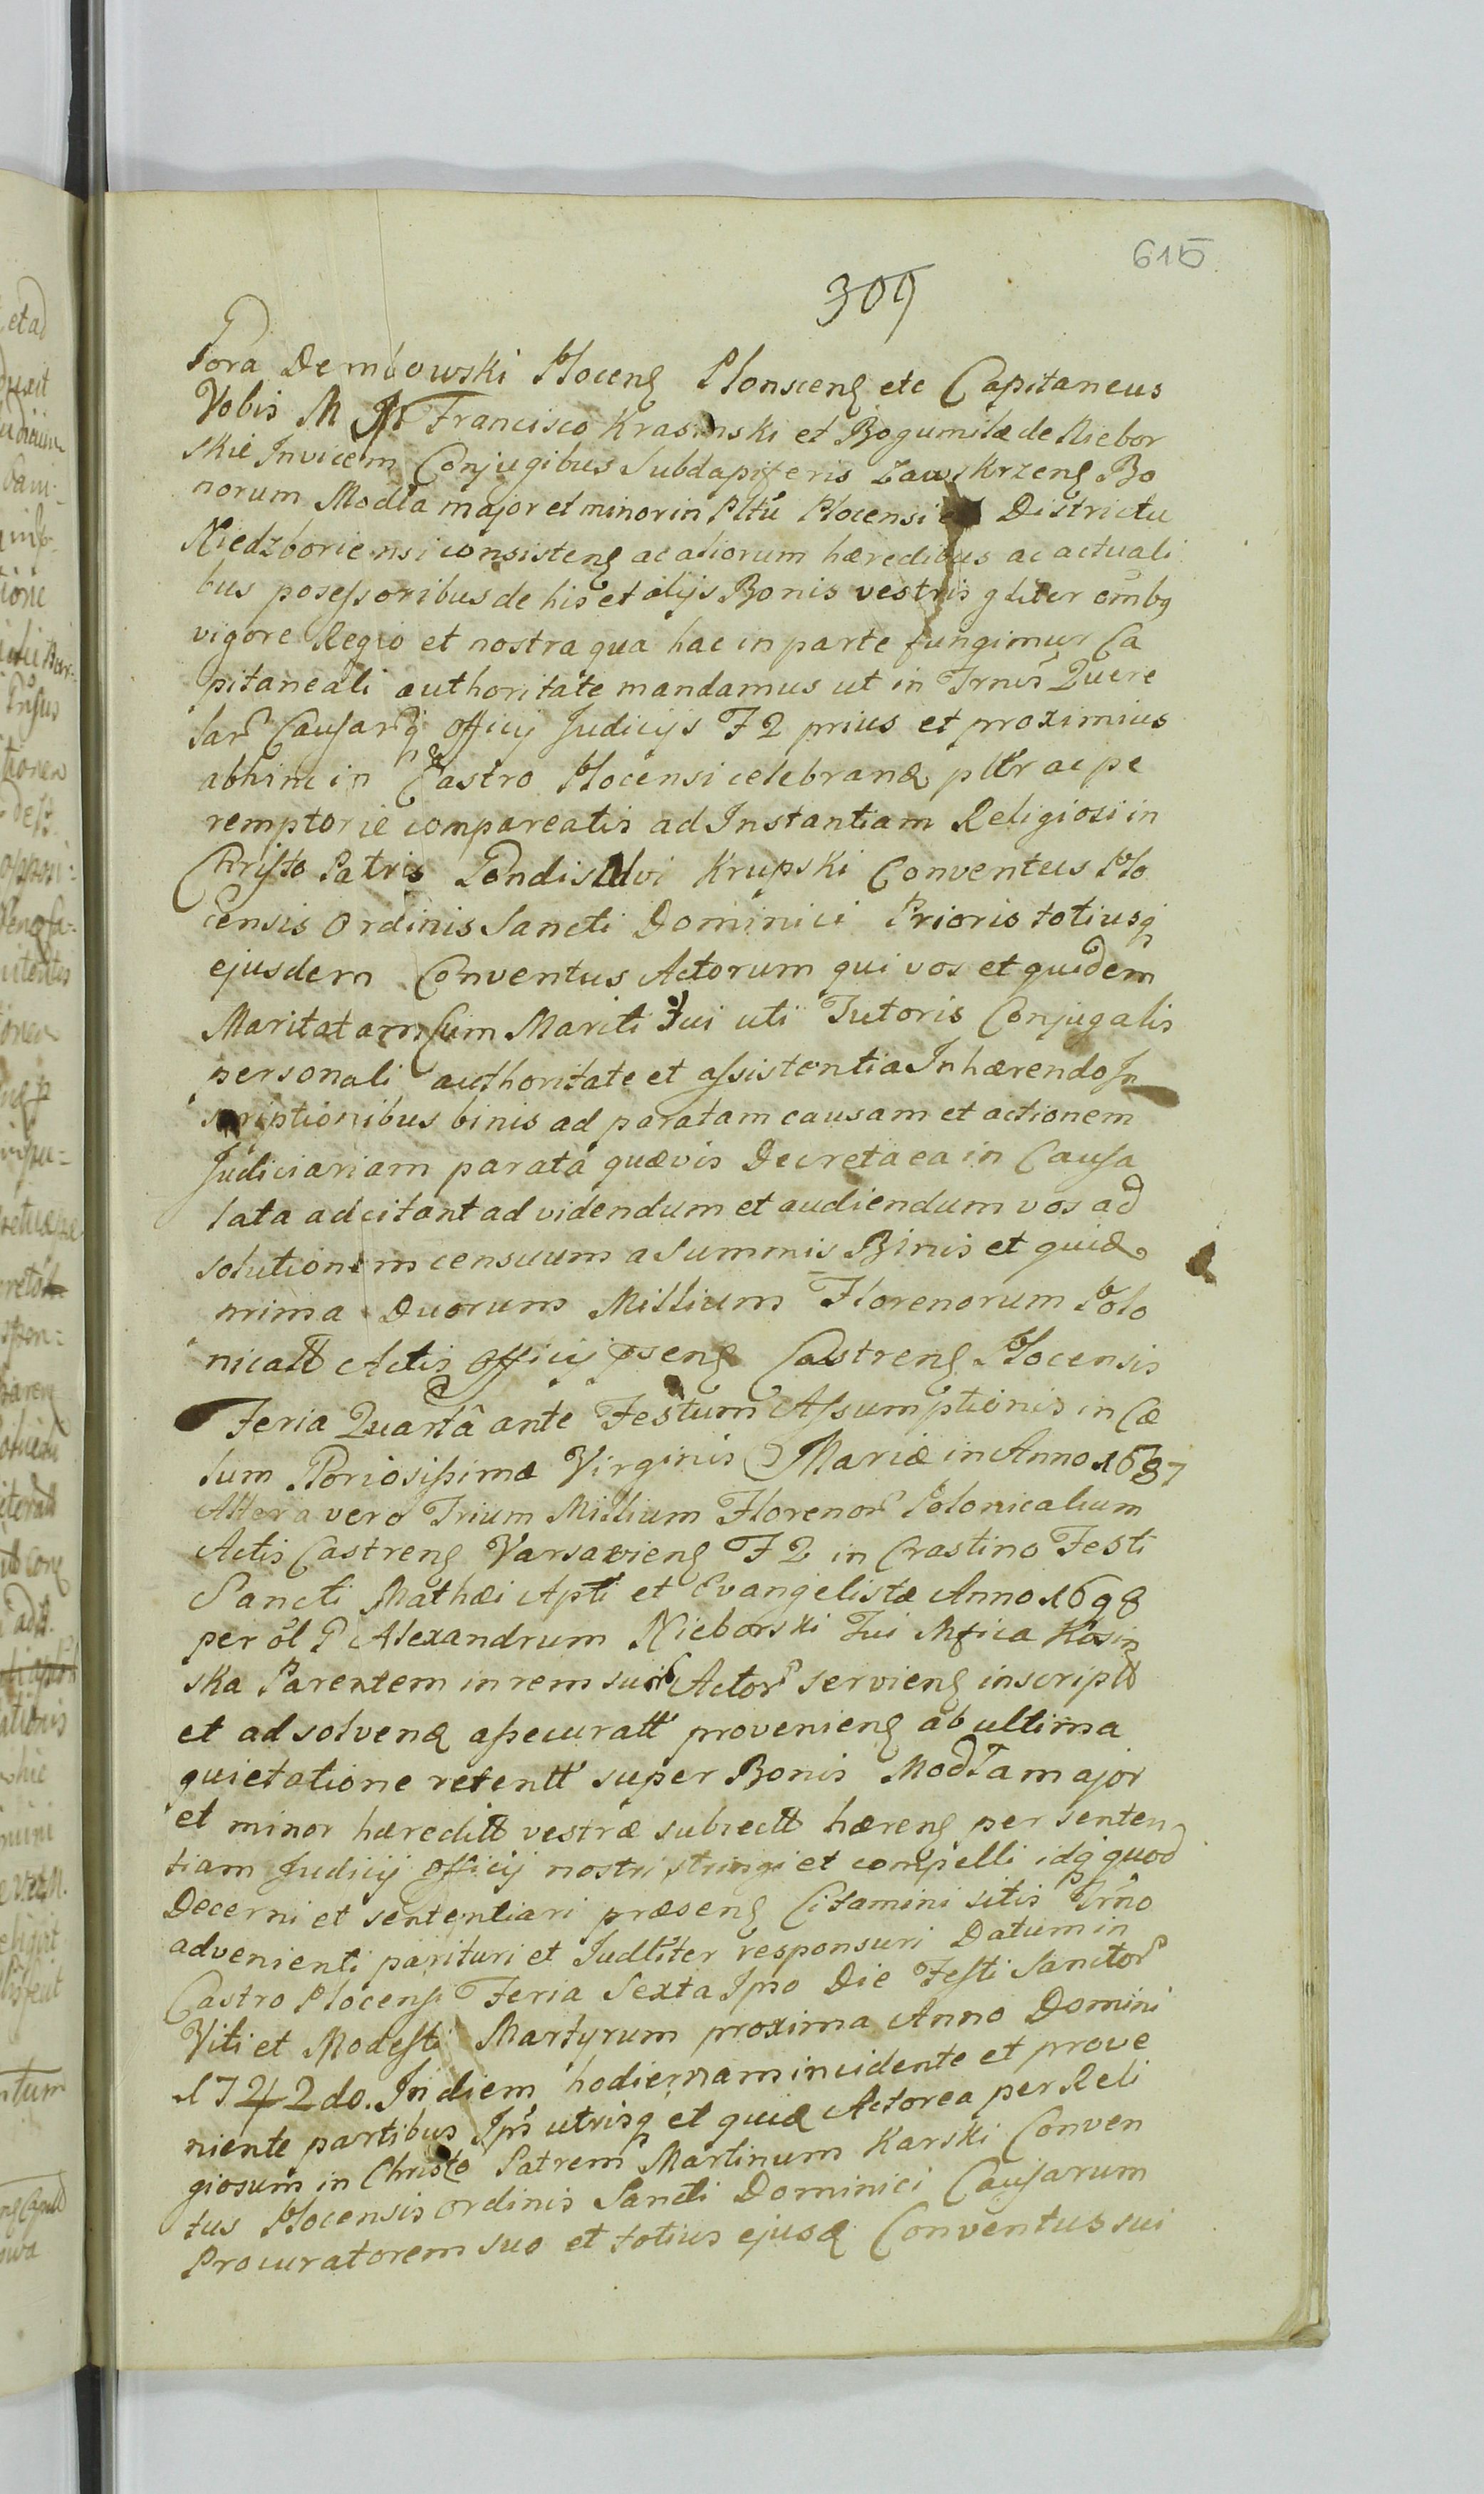 615
309
Gora Dembowski Plocens Plonscens etc Capitaneus
Vobis M M Francisco Krasinski et Bogumilæ de Niebor
skie Invicem Conjugibus Subdapiferis Zawskrzens Bo
norum Modła major et minor in Pltu Plocensi et Districtu
Niedzboriensi consistens ac aliorum hæredibus ac actuali
bus posessoribus de his et alijs Bonis vestris gliter ombq
vigore Regio et nostra qua hac in parte fungimur Ca
pitaneali authoritate mandamus ut in Trnis Quere
lar Causarq Officij Judicijs F 2 prius et proximius
abhinc in Castro Plocensi celebrand pltr ac pe
remptorie compareatis ad Instantiam Religiosi in
Christo Patris Krupski Conventus Plo
censis Ordinis Sancti Dominici Prioris totiusq
ejusdem Conventus Actorum qui vos et quidem
Maritatam Cum Mariti Sui uti Tutoris Conjugalis
personali authoritate et assistentia Inhærendo In
scriptionibus binis ad paratam causam et actionem
Judiciariam parata quævis Decreta ea in Causa
lata adcitant ad videndum et audiendum vos ad
solutionem censuum a Summis Binis et quid
prima Duorum Millium Florenorum Polo
nicall Actis Officij psens Castrens Plocensis
Feria Quarta ante Festum Assumptionis in Cæ
lum Gloriosissimæ Virginis Mariæ in Anno 1687
Altera vero Trium Millium Florenor Polonicalium
Actis Castrens Varsaviens F 2 in Crastino Festi
Sancti Mathæi Apti et Evangelistæ Anno 1698
per ol P Alexandrum Nieborski Tui Mfica Kosin
ska Parentem in rem suor Actor serviens inscriptt
et ad solvend assecuratt proveniens ab ultima
quietatione retentt super Bonis Modła major
et minor hæreditt vestræ subiectt hærens per senten
tiam Judicij Officij nostri stringi et compelli idq quod
Decerni et sententiari præsens Citamini sitis Trno
advenienti parituri et Judliter responsuri Datum in
Castro Plocensi Feria Sexta Ipso Die Festi Sanctor
Viti et Modesti Martyrum proxima Anno Domini
1742do. In diem hodiernam incidente et prove
niente partibus Ipis utrisq et quid Actorea per Reli
giosum in Christo Patrem Martinum Karski Conven
tus Plocensis Ordinis Sancti Dominici Causarum
Procuratorem suo et totius ejusd Conventus sui